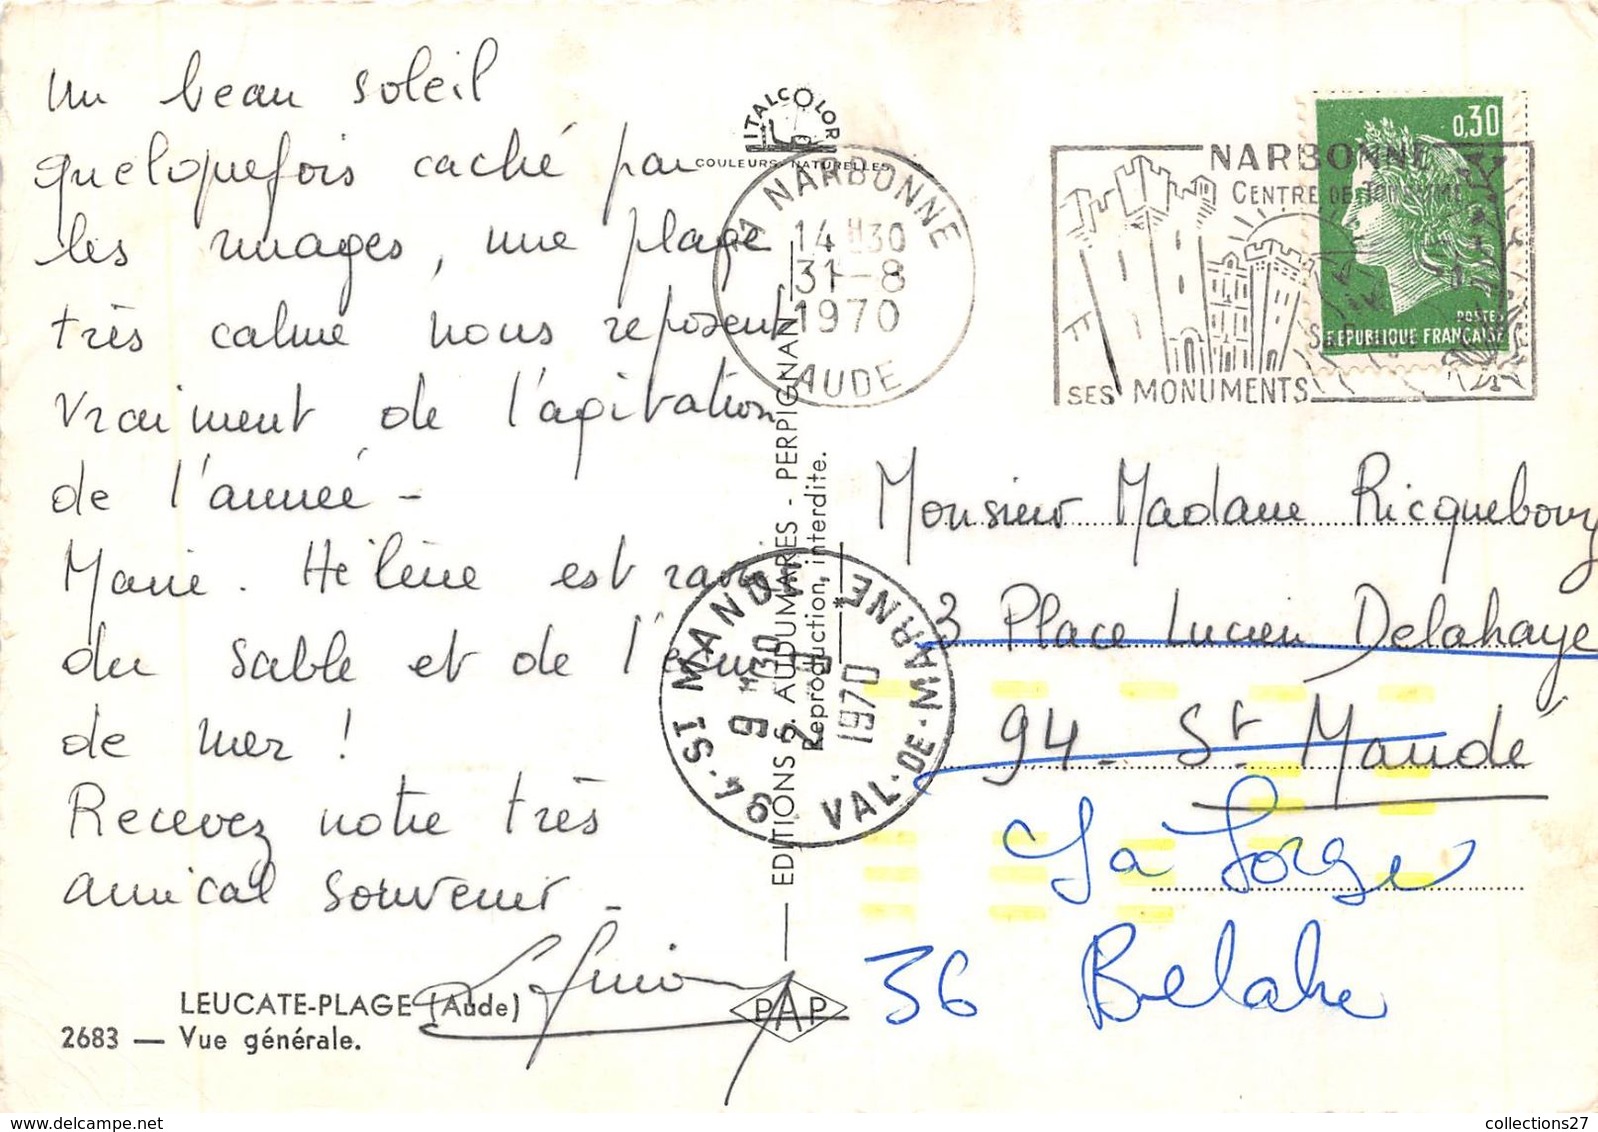 Un beau soleil
quelquefois caché par
les nuages, une plage
très calme nous reposent
vraiment de l'agitation
de l'année -
Marie. Hélène est ravie
du sable et de l'eau
de mer !
Recevez notre très
amical souvenir -
LEUCATE-PLAGE (Aude)
2683 — Vue générale.
ITALCOLOR
COULEURS NATURELLES
11 NARBONNE
14 H30
31-8
1970
AUDE
EDITIONS S. AUDUMARES - PERPIGNAN
Reproduction interdite.
PAP
94-ST MANDÉ
9 H30
2-9
1970
VAL-DE-MARNE
NARBONNE
CENTRE DE TOURISME
SES MONUMENTS
0,30
POSTES
REPUBLIQUE FRANÇAISE
Monsieur Madame Ricquebourg
3 Place Lucien Delahaye
94 - St Mandé
La Forge
36 Belabre
collections27